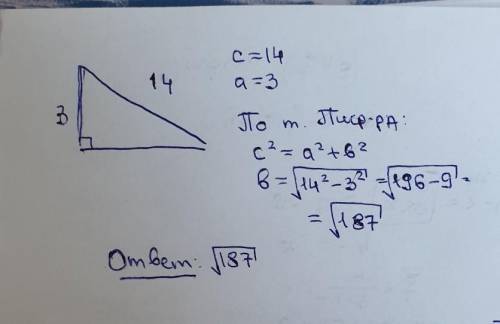 14
3
c=14
a=3
По т. Пиф-ра:
c²=a²+b²
b=√14²-3²=√196-9=
=√187
Ответ: √187